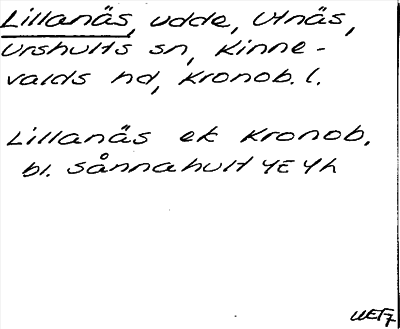 Lillanäs, udde, Utnäs,
Urshults sn, Kinne-
valds hd, Kronob. l.
Lillanäs ek Kronob.
bl. Sånnahult 4E4h